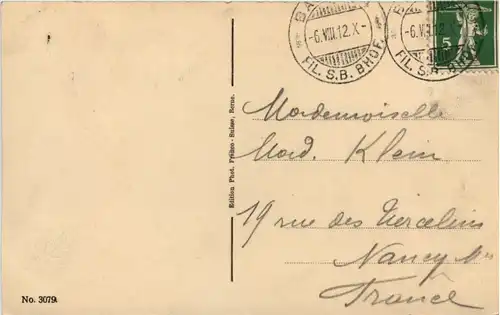 -6.VIII.12.X-
FIL. S.B. BHOF.
-6.VIII.12
FIL. S.B. BHOF.
5
Mademoiselle
Mad. Klein
19 rue des Tiercelins
Nancy
France
Edition Phot. Franco-Suisse, Berne.
No. 3079